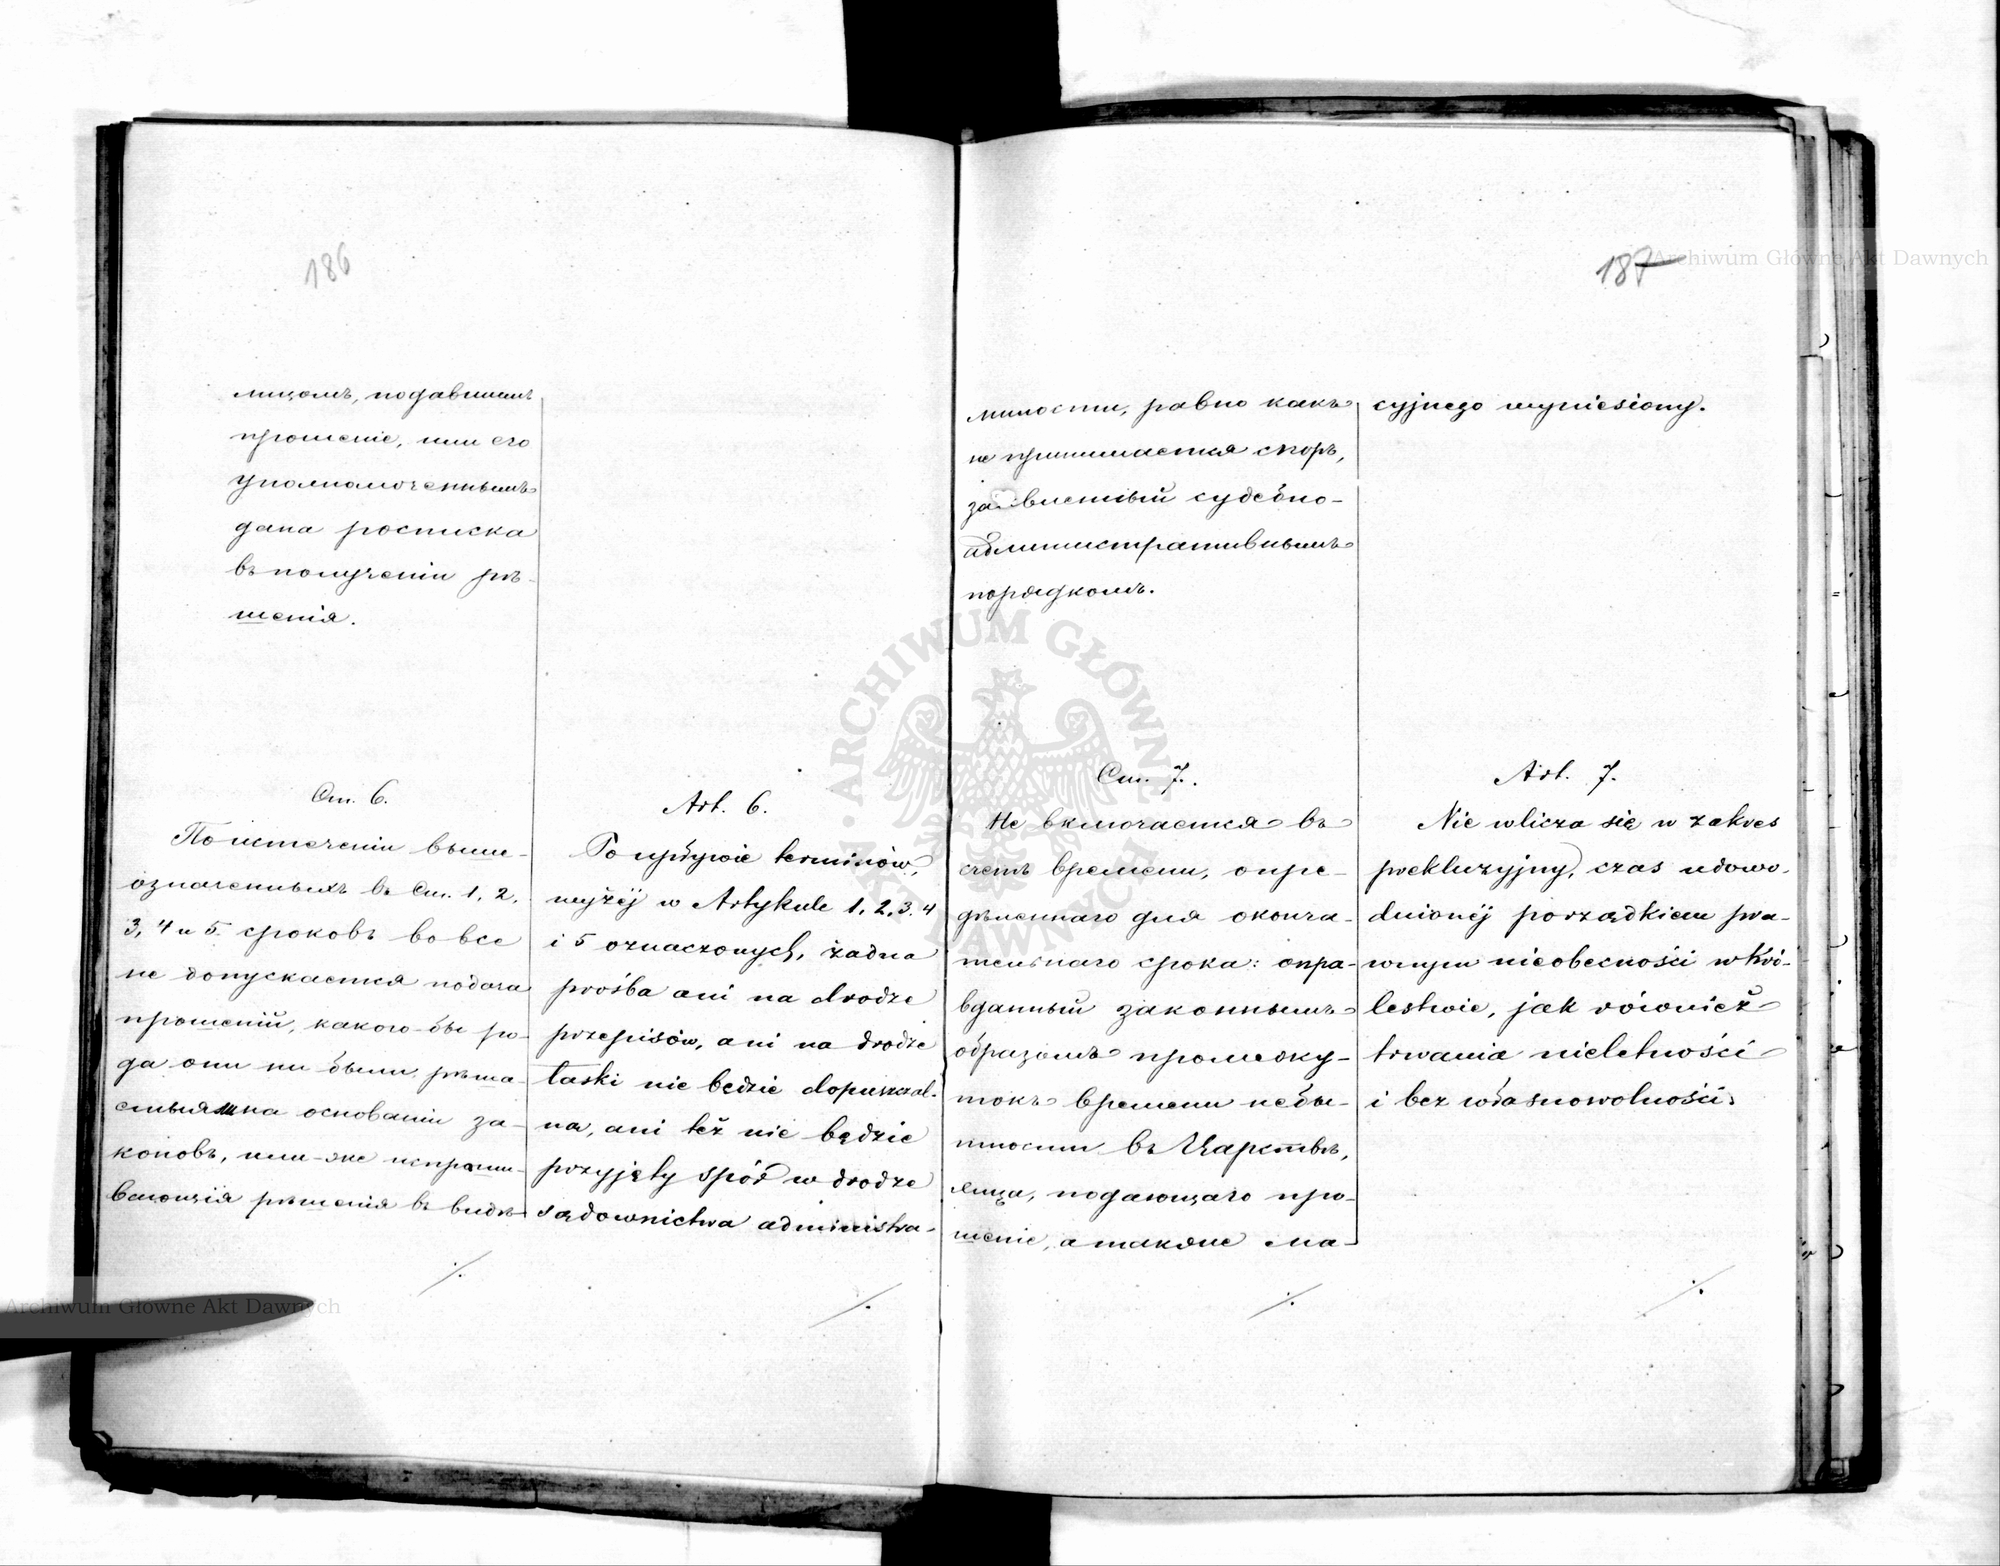 186
лицомъ, подавшимъ
прошеніе, или его
уполномоченнымъ
дана росписка
въ полученіи рѣ-
шенія.
Ст. 6.
По истеченіи выше-
означенныхъ въ Ст. 1, 2,
3, 4 и 5 сроковъ вовсе
не допускается подача
прошеній, какого-бы ро-
да они ни были рѣша-
емыя на основаніи за-
коновъ, или-же испраши-
вающія рѣшенія въ видѣ
Art. 6.
Po upływie terminów,
wyżéj w Artykule 1, 2, 3, 4
i 5 oznaczonych, żadna
prośba ani na drodze
przepisów, ani na drodze
łaski nie będzie dopuszczal-
na, ani też nie będzie
przyjęty spór w drodze
sądownictwa administra-
187
милости, равно какъ
не принимается споръ,
судебно-
административнымъ
порядкомъ.
Ст. 7.
Не включается въ
счетъ времени, опре-
дѣленнаго для оконча-
тельнаго срока: опра-
вданный законнымъ
образомъ промежу-
токъ времени небы-
тности въ Царствѣ,
лица, подающаго про-
шеніе, а также ма-
cyjnego wyniesiony.
Art. 7.
Nie wlicza się w zakres
prekluzyjny, czas udowo-
dnionéj porządkiem pra-
wnym nieobecności w Kró-
lestwie, jak również
trwania nieletności
i bez własnowolności.
Archiwum Główne Akt Dawnych
ARCHIWUM GŁÓWNE AKT DAWNYCH
Archiwum Główne Akt Dawnych